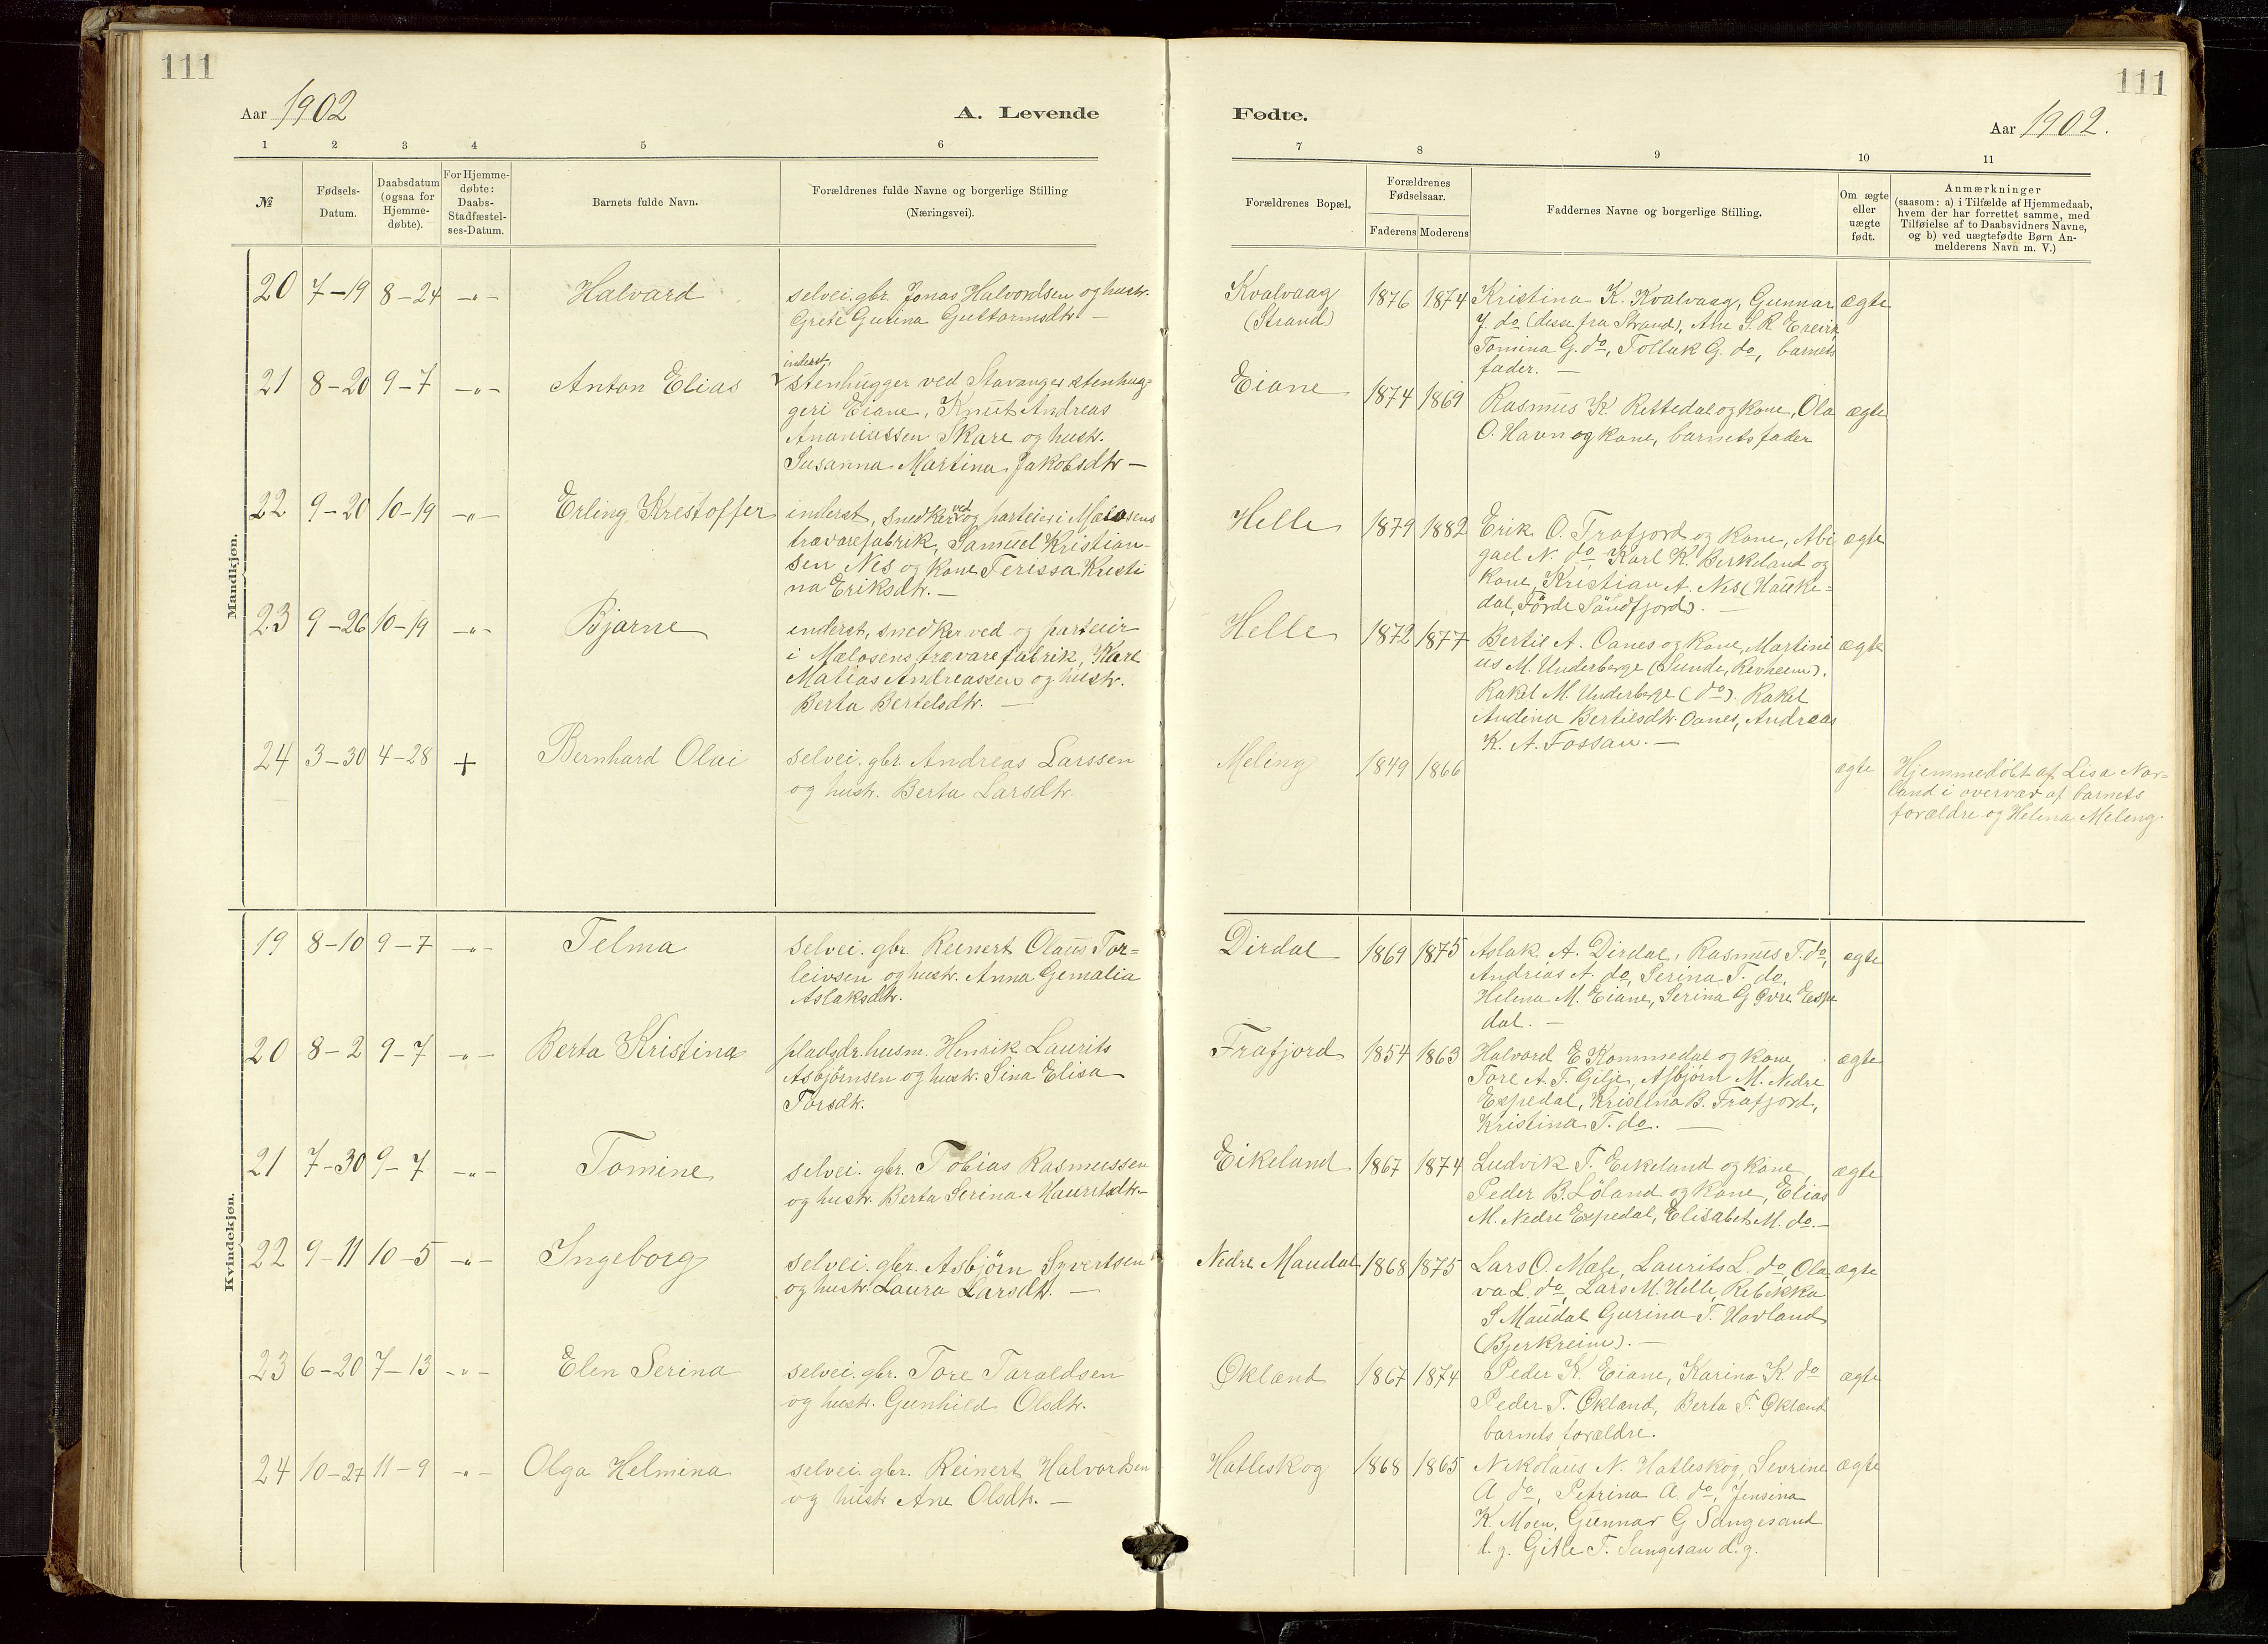 111
111
Aar 1902
A. Levende
Fødte.
Aar 1902.
1 2 3 4 5 6
7 8 9 10 11
№
Fødsels-
Datum.
Daabsdatum
(ogsaa for
Hjemme-
døbte).
For Hjemme-
døbte:
Daabs-
Stadfæstel-
ses-Datum.
Barnets fulde Navn.
Forældrenes fulde Navne og borgerlige Stilling
(Næringsvei).
Forældrenes Bopæl.
Forældrenes
Fødselsaar.
Faderens Moderens
Faddernes Navne og borgerlige Stilling.
Om ægte
eller
uægte
født.
Anmærkninger
(saasom: a) i Tilfælde af Hjemmedaab,
hvem der har forrettet samme, med
Tilføielse af to Daabsvidners Navne,
og b) ved uægtefødte Børn An-
melderens Navn m. V.)
Mandkjøn.
20 7-19 8-24 -"- Halvard
selvei. gbr. Jonas Halvordsen og hustr.
Grete Gurina Guttormsdtr. -
Kvalvaag
(Strand)
1876 1874
Kristina K. Kvalvaag, Gunnar
J. do (disse fra Strand), Ane S. R. Erevik
Tomina G. do, Tollak G. do, barnets
fader. -
ægte
21 8-20 9-7 -"- Anton Elias
inderst,
stenhugger ved Stavanger stenhug=
geri Eiane, Knut Andreas
Ananiassen Skare og hustr.
Susanna Martina Jakobsdtr -
Eiane 1874 1869
Rasmus K. Rettedal og kone, Ola
O. Havn og kone, barnets fader
ægte
22 9-20 10-19 -"- Erling Kristoffer
inderst, snedker ved og parteier i Mælosens
trævarefabrik, Samuel Kristian-
sen Nes og kone Teressa Kristi
na Eriksdtr. -
Helle 1879 1882
Erik O. Frafjord og kone, Abi
gael N. do Karl K. Berkeland og
kone, Kristian A. Nes (Hauke=
dal, Førde Søndfjord). -
ægte
23 9-26 10-19 -"- Bjarne
inderst, snedker ved og parteier
i Mælosens trævarefabrik, Karl
Matias Andreassen og hustr.
Berta Bertelsdtr. -
Helle 1872 1877
Bertil A. Oanes og kone, Martini
us M. Underberge (Sunde, Revheim).
Rakel M. Underberge (do). Rakel
Andina Bertilsdtr. Oanes, Andreas
K. A. Fossan. -
ægte
24 3-30 4-28 + Bernhard Olai
selvei. gbr. Andreas Larssen
og hustr. Berta Larsdtr.
Meling 1849 1866
ægte
Hjemmedøbt af Lisa Nor-
land i overvær af barnets
forældre og Helena Meling.
Kvindekjøn.
19 8-10 9-7 -"- Telma
selvei. gbr. Reinert Olaus Tor=
leivsen og hustr. Anna Gemalia
Aslaksdtr.
Dirdal 1869 1875
Aslak A. Dirdal, Rasmus T. do,
Andrias A. do, Serina T. do,
Helena M. Eiane, Serina G. Øvre Espe
dal. -
ægte
20 8-2 9-7 -"- Berta Kristina
pladsdr. husm. Henrik Laurits
Asbjørnsen og hustr. Sina Elisa
Torsdtr.
Frafjord 1854 1863
Halvard E. Kommedal og kone,
Tore A. T. Gilje, Asbjørn M. Nedre
Espedal, Kristina B. Frafjord,
Kristina T. do. -
ægte
21 7-30 9-7 -"- Tomine
selvei. gbr. Tobias Rasmussen
og hustr. Berta Serina Mauritsdtr. -
Eikeland 1867 1874
Ludvik T. Eikeland og kone,
Peder B. Løland og kone, Elias
M. Nedre Espedal, Elisabet M. do. -
ægte
22 9-11 10-5 -"- Ingeborg
selvei. gbr. Asbjørn Syvertsen
og hustr. Laura Larsdtr. -
Nedre Maudal 1868 1875
Lars O. Mæle, Laurits L. do, Ola
va L. do, Lars M. Helle, Rebekka
S Maudal Gurina T. Hovland
(Bjerkreim). -
ægte
23 6-20 7-13 -"- Elen Serina
selvei. gbr. Tore Taraldsen
og hustr. Gunhild Olsdtr.
Økland 1867 1874
Peder K. Eiane, Karina K. do
Peder T. Økland, Berta T. Økland
barnets forældre.
ægte
24 10-27 11-9 -"- Olga Helmina
selvei. gbr. Reinert Halvordsen
og hustr Ane Olsdtr. -
Hatleskog 1868 1865
Nikolaus N. Hatleskog, Sevrine
A. do, Petrina A. do, Jensina
K. Moen, Gunnar G Sangesand
d.g. Gitle T. Sangesan d.g.
ægte